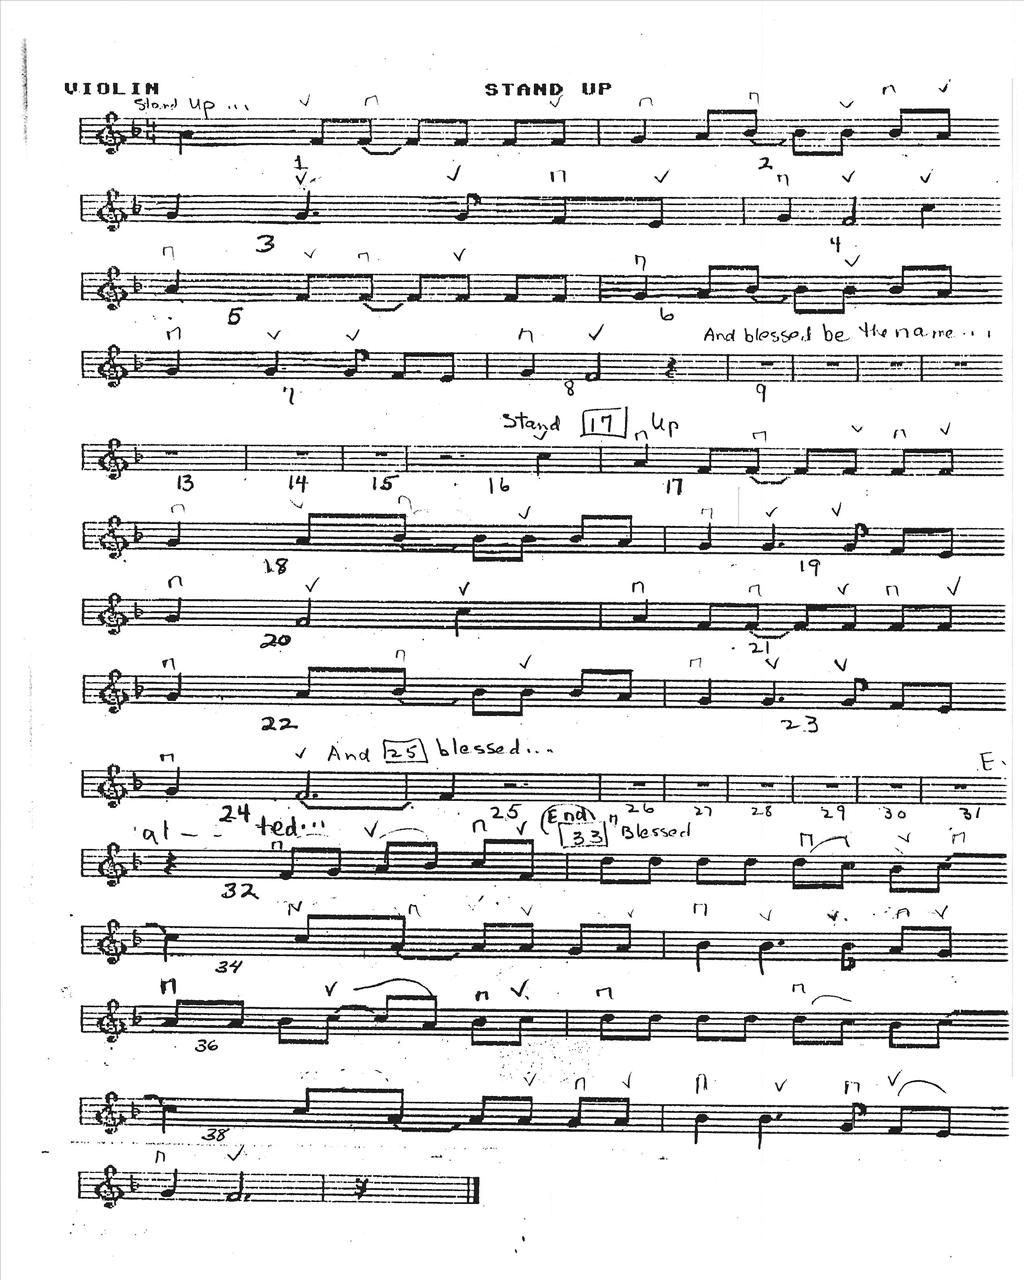 VIOLIN STAND UP
Stand Up ...
1 2
3 4
5 6
And blessed be the name...
7 8 9
Stand 17 Up
13 14 15 16 17
18 19
20 21
22 23
And 25 blessed...
E
24 25 26 27 28 29 30 31
al - - ted... (End) 33 Blessed
32
34
36
38